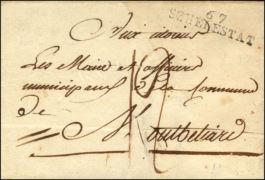 67
SCHELESTAT
Aux citoiens
Les Maire et officiers
municipaux de la Commune
de
Montbeliard